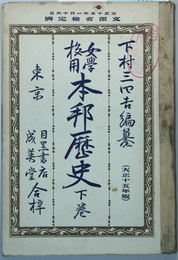 文部省檢定濟
大正十五年一月十六日
下村三四吉編纂
（大正十五年版）
女學校用
本邦歷史 下卷
東京
目黑書店
成美堂
合梓